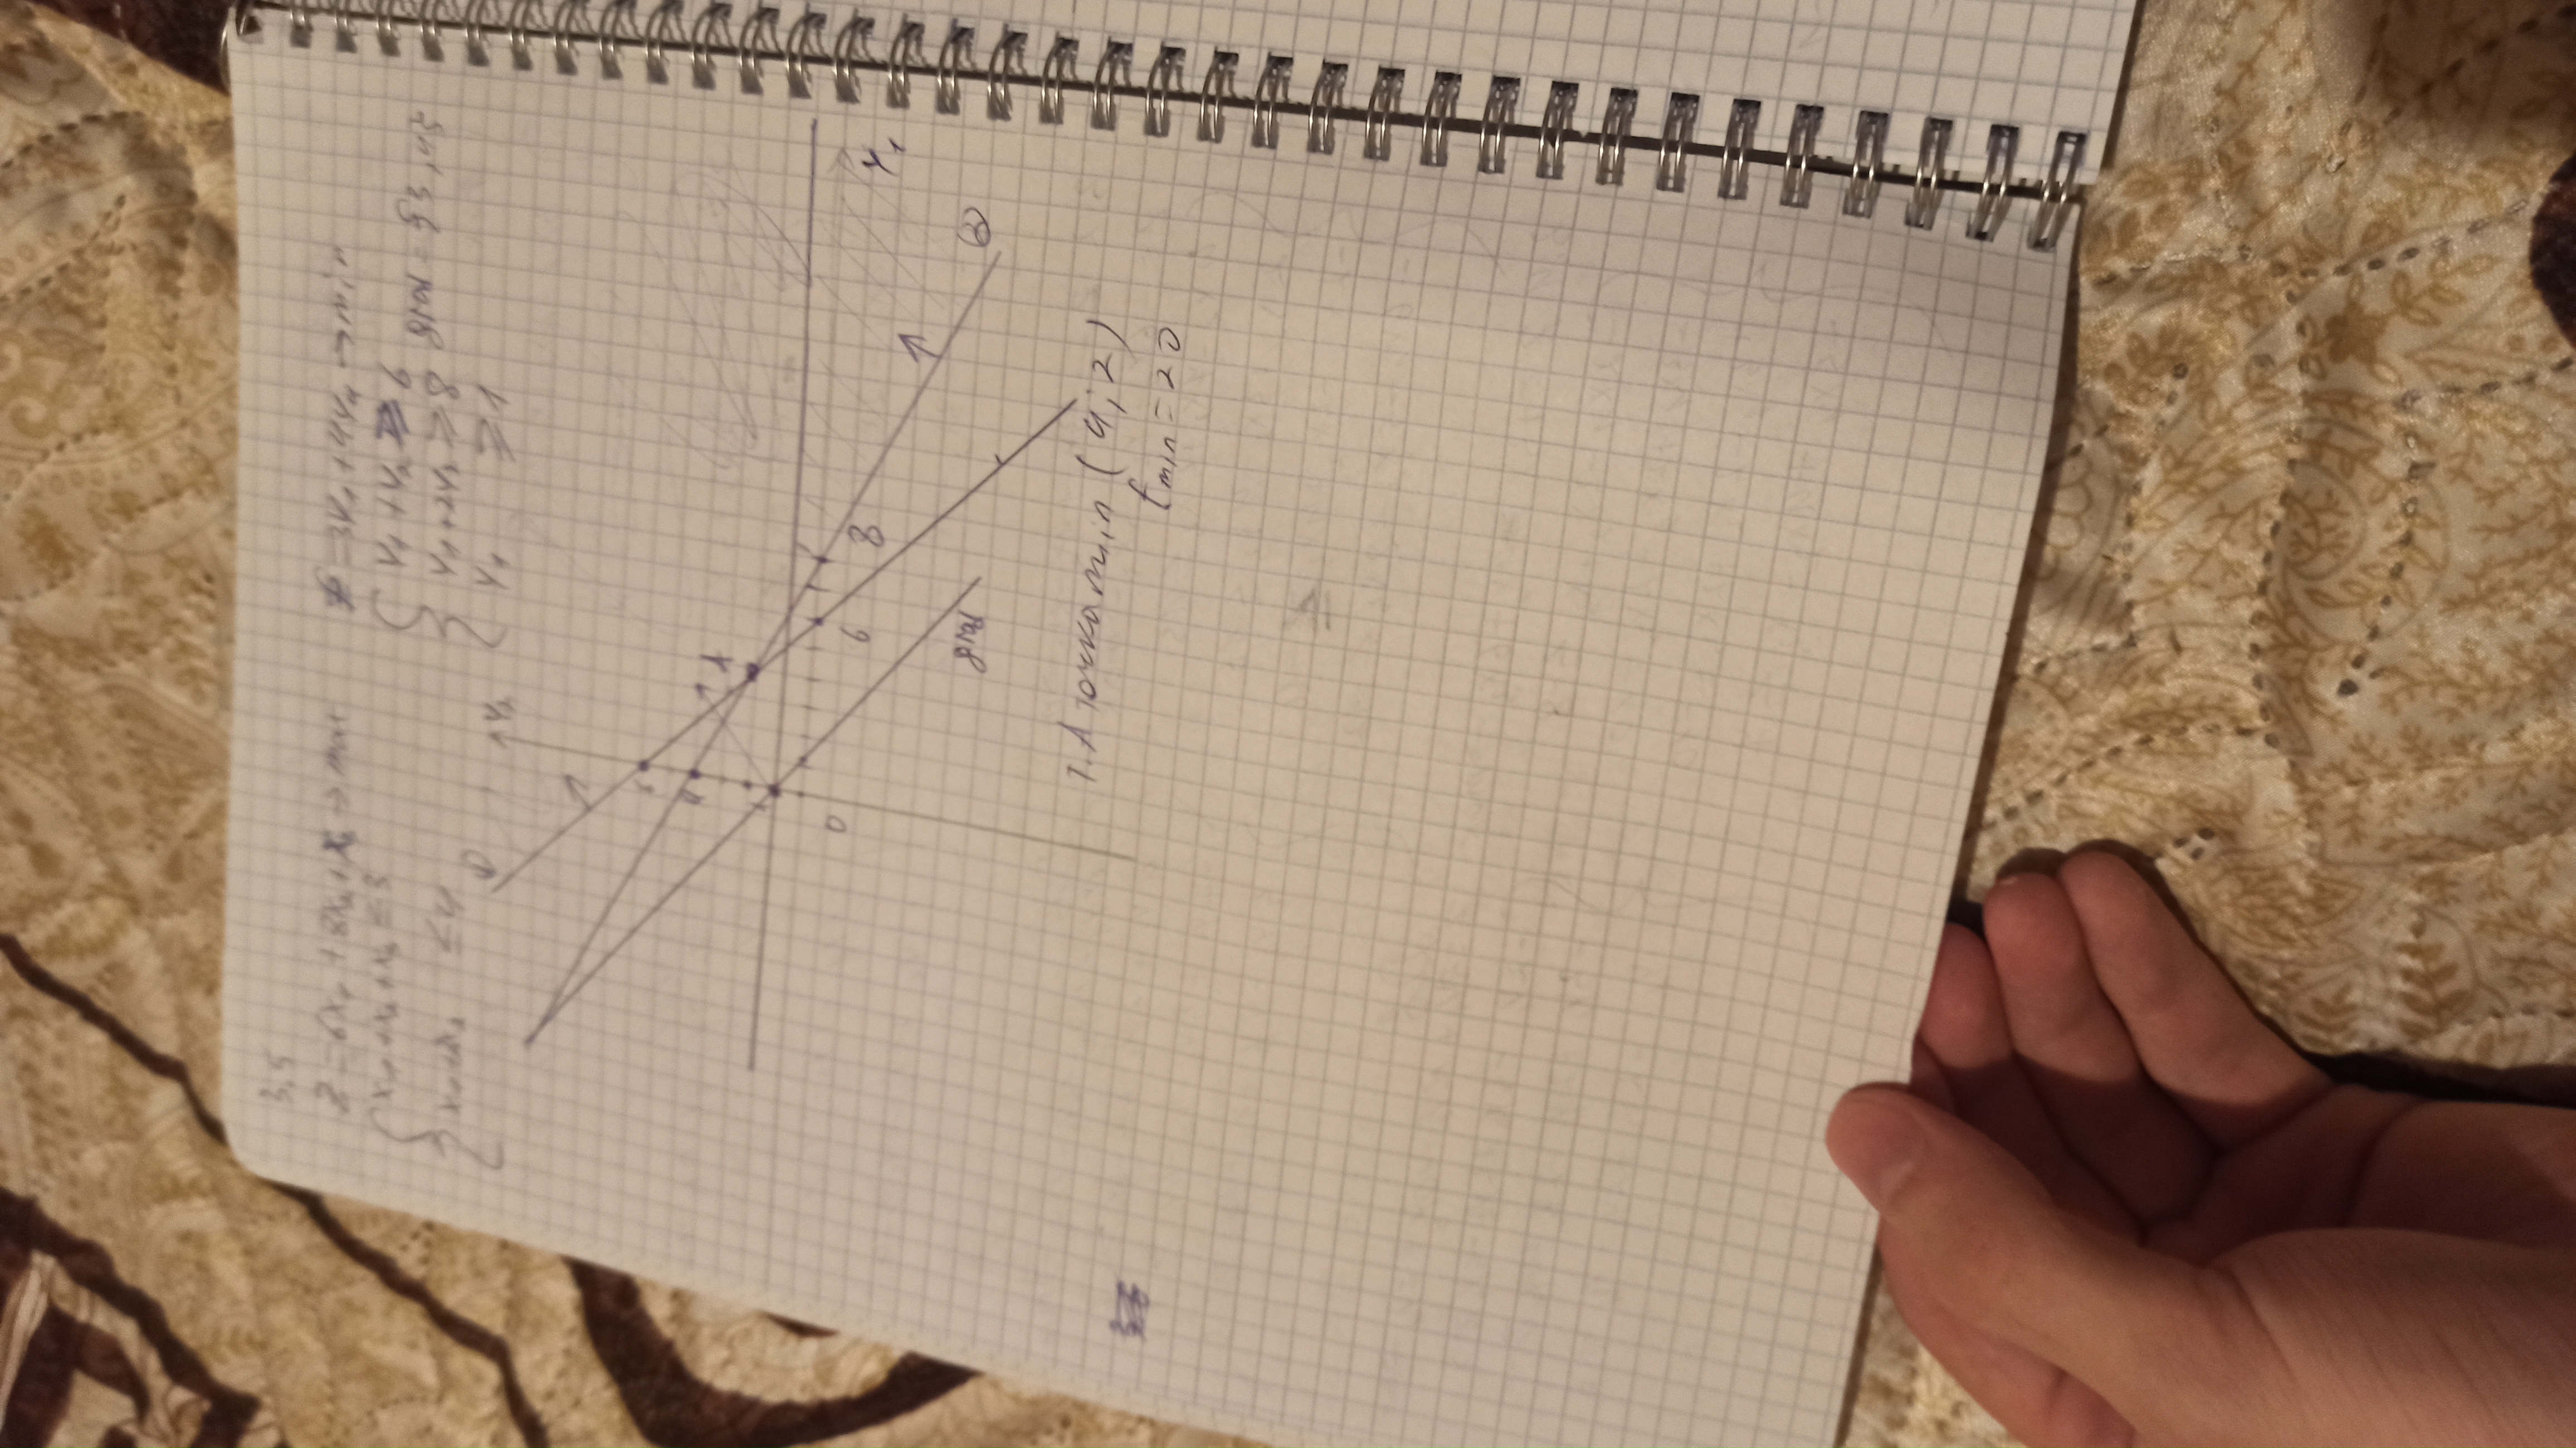 3.5
Z = 6x₁ + 8x₂ + x₃ → max
x₁ + x₂ + x₃ ≤ 3
≤ 4
f = 3y₁ + 4y₂ → min
y₁ + y₂ ≥ 6
y₁ + 2y₂ ≥ 8
y₁ ≥ 1
grad = {3, 4}
① y₂
4 A
0 6 8 y₁
grad ②
т. А точка min (4; 2)
fmin = 20
≥